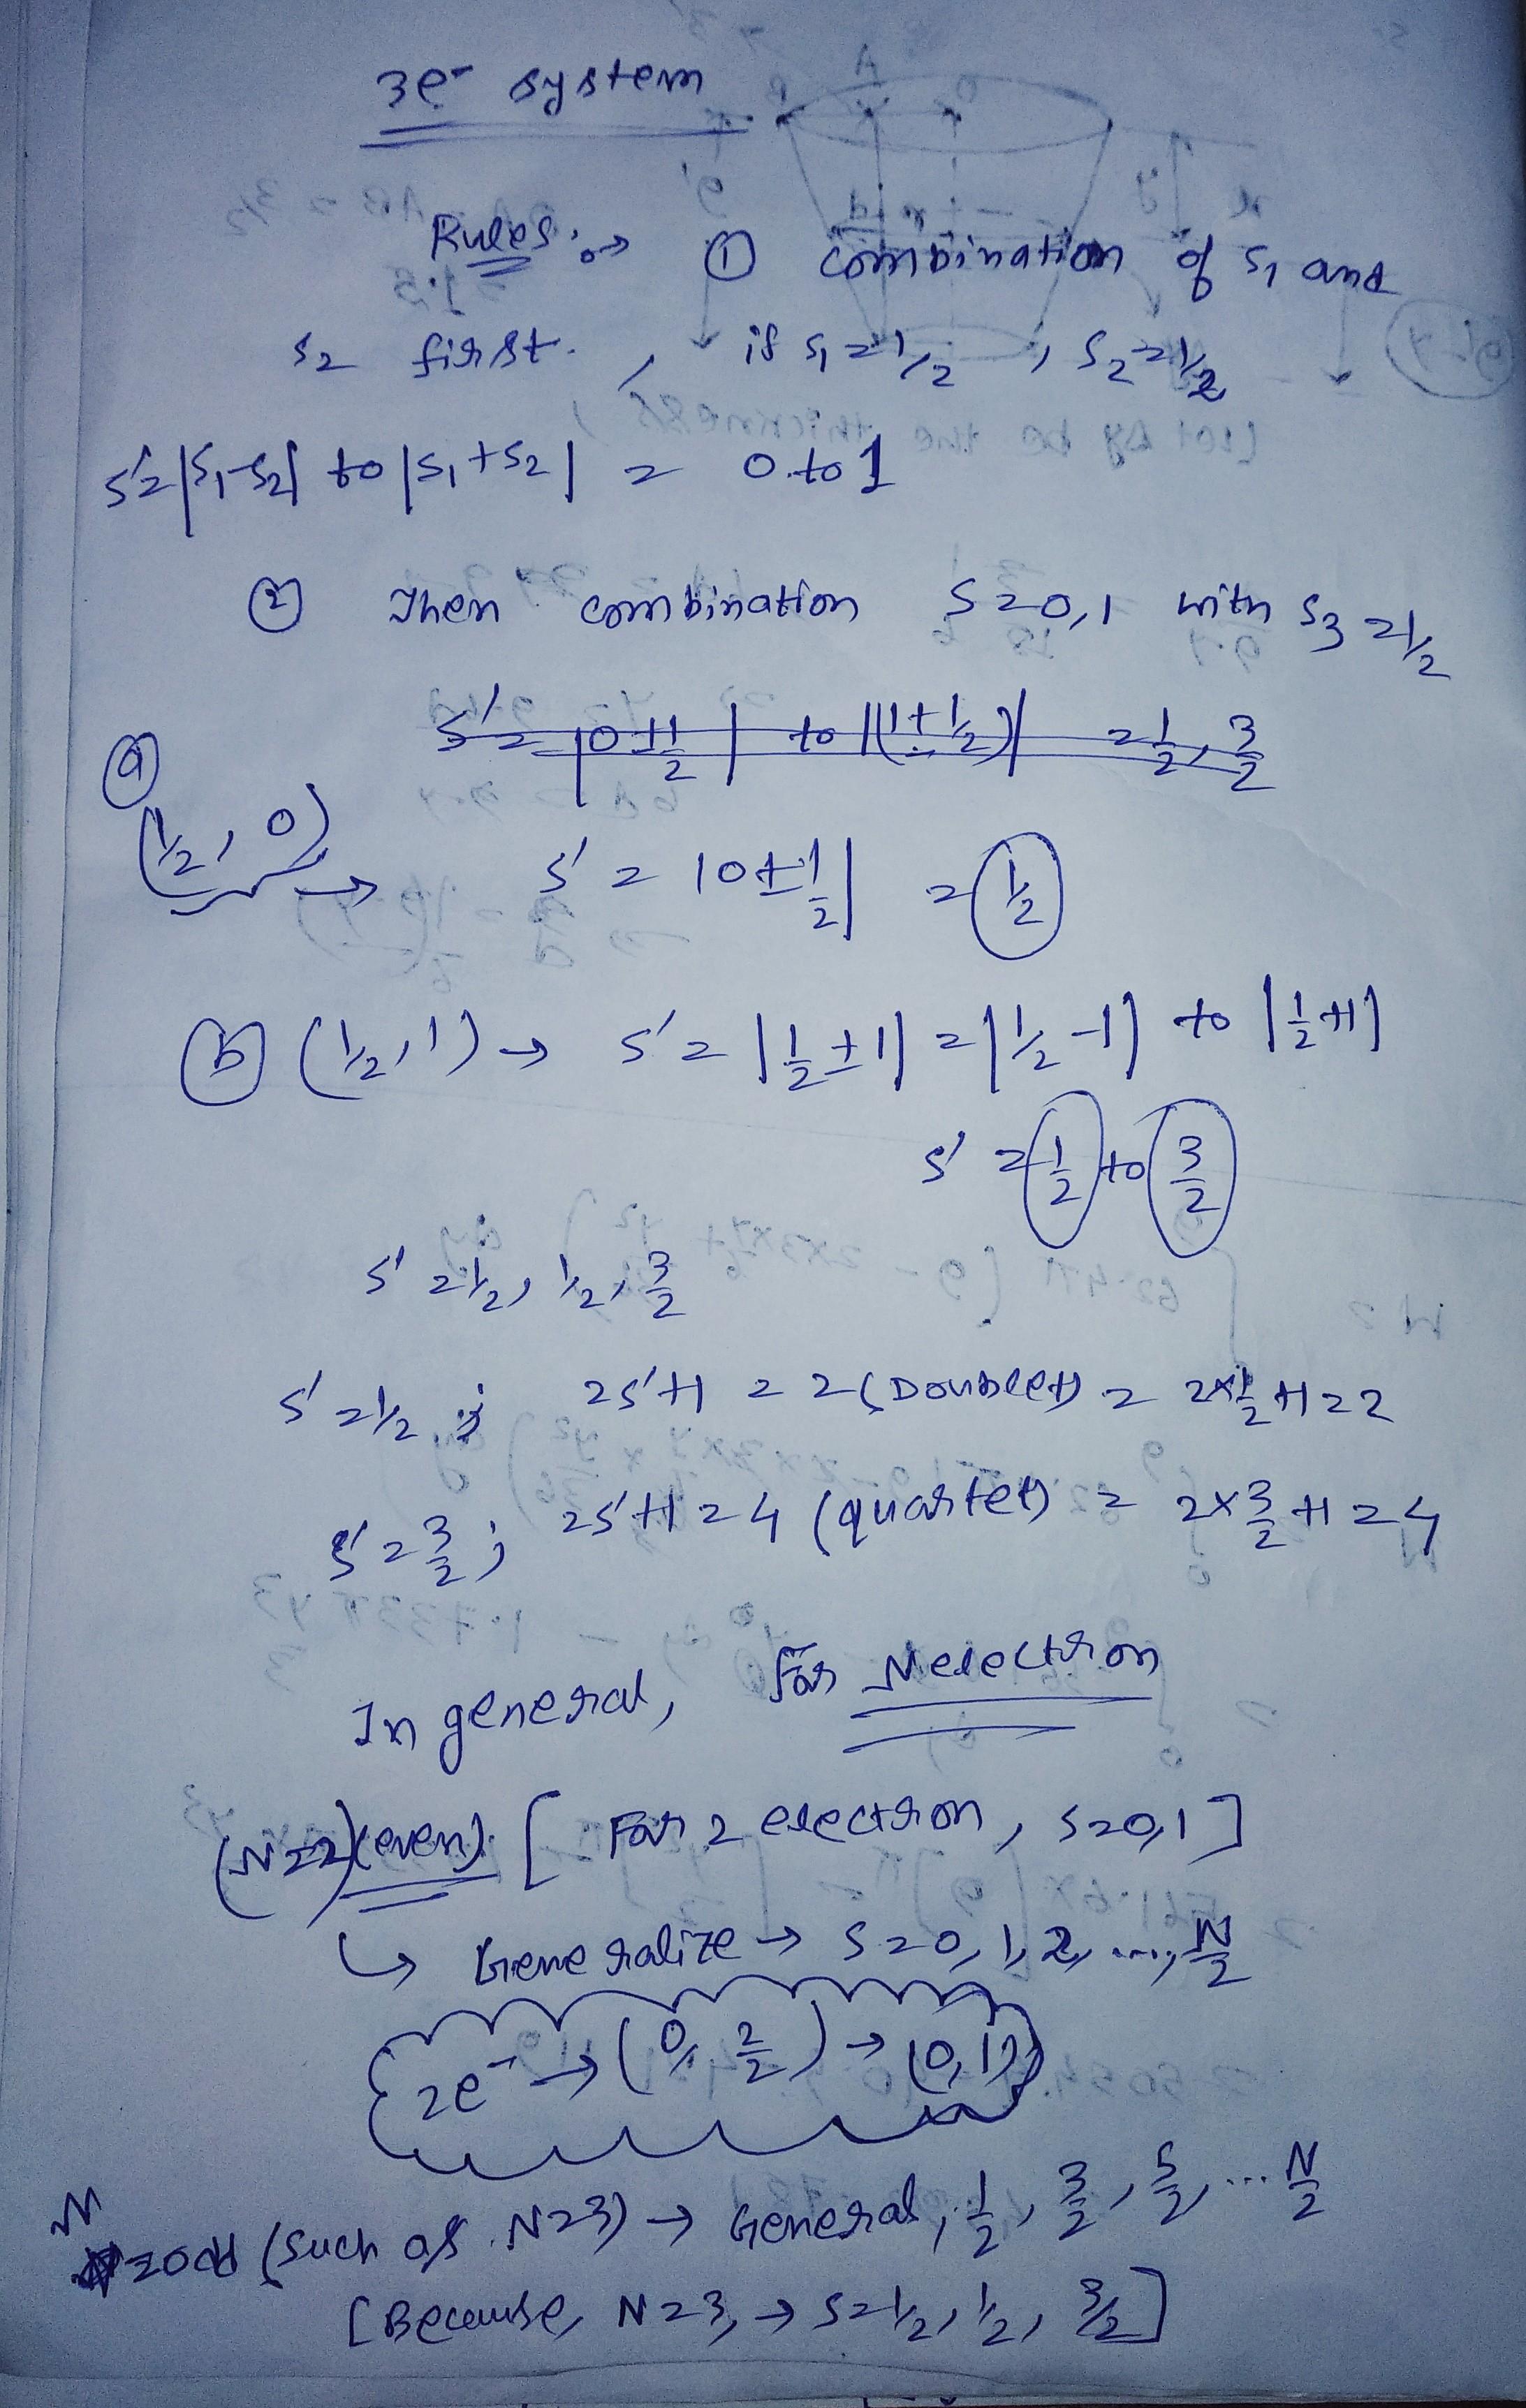 3e⁻ system
Rules :→ ① combination of s₁ and
s₂ first. , if s₁=1/2 , s₂=1/2
s'=|s₁-s₂| to |s₁+s₂| = 0 to 1
② Then combination s=0,1 with s₃=1/2
s'= |0±1/2| to |(1±1/2)| = 1/2, 3/2
ⓐ
(1/2, 0) → s' = |0±1/2| = 1/2
ⓑ (1/2, 1) → s' = |1/2 ± 1| = |1/2 -1| to |1/2 +1|
s' = 1/2 to 3/2
s' = 1/2, 1/2, 3/2
s' = 1/2 ; 2s'+1 = 2 (Doublet) = 2×1/2+1=2
s' = 3/2 ; 2s'+1 = 4 (quartet) = 2×3/2+1=4
In general, For N electron
(N=2)(even). [ For 2 electron, s=0,1 ]
↳ Generalize → s=0, 1, 2, ...., N/2
2e⁻ → (0, 2/2) → (0,1)
N
=odd (such as N=3) → General, 1/2, 3/2, 5/2, ... N/2
[Because, N=3, → s=1/2, 1/2, 3/2]